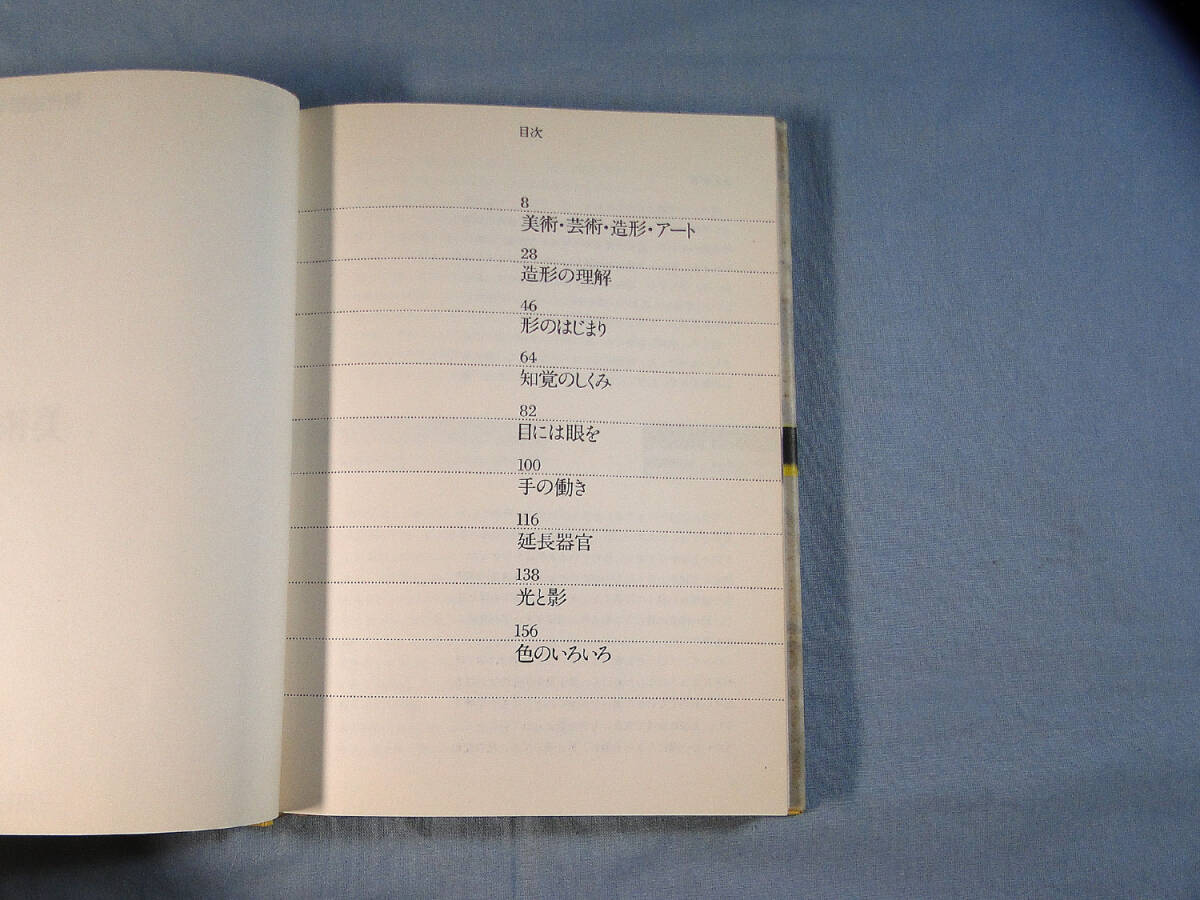 目次
8
美術・芸術・造形・アート
28
造形の理解
46
形のはじまり
64
知覚のしくみ
82
目には眼を
100
手の働き
116
延長器官
138
光と影
156
色のいろいろ